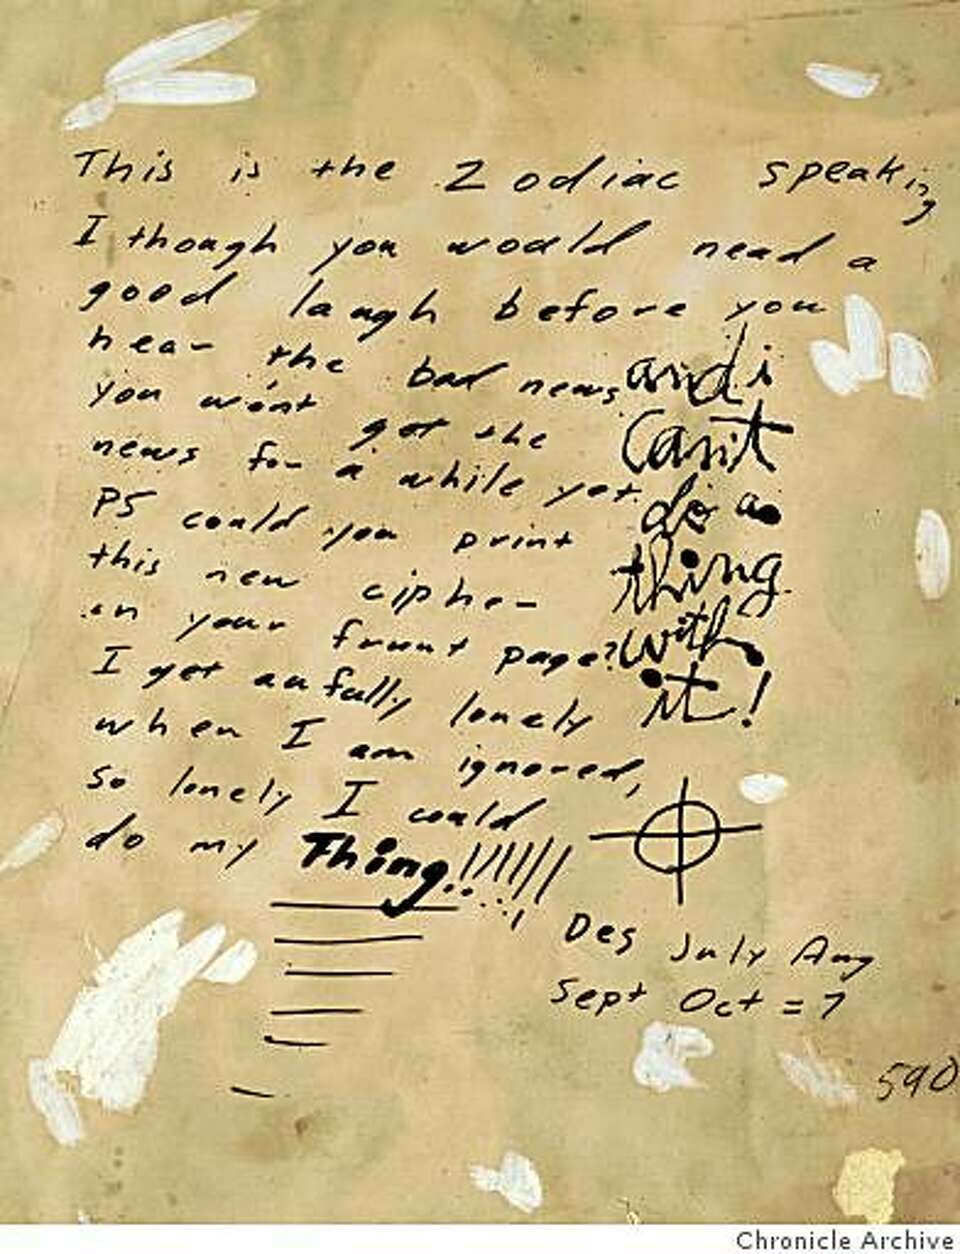 This is the Zodiac speaking
I though you would nead a
good laugh before you
hear the bad news
you won't get the
news for a while yet
PS could you print
this new cipher
on your frunt page?
I get aufully lonely
when I am ignored,
So lonely I could
do my Thing!!!!!!
and i
Can't
do a
thing
with
it!
Des July Aug
Sept Oct = 7
590
Chronicle Archive